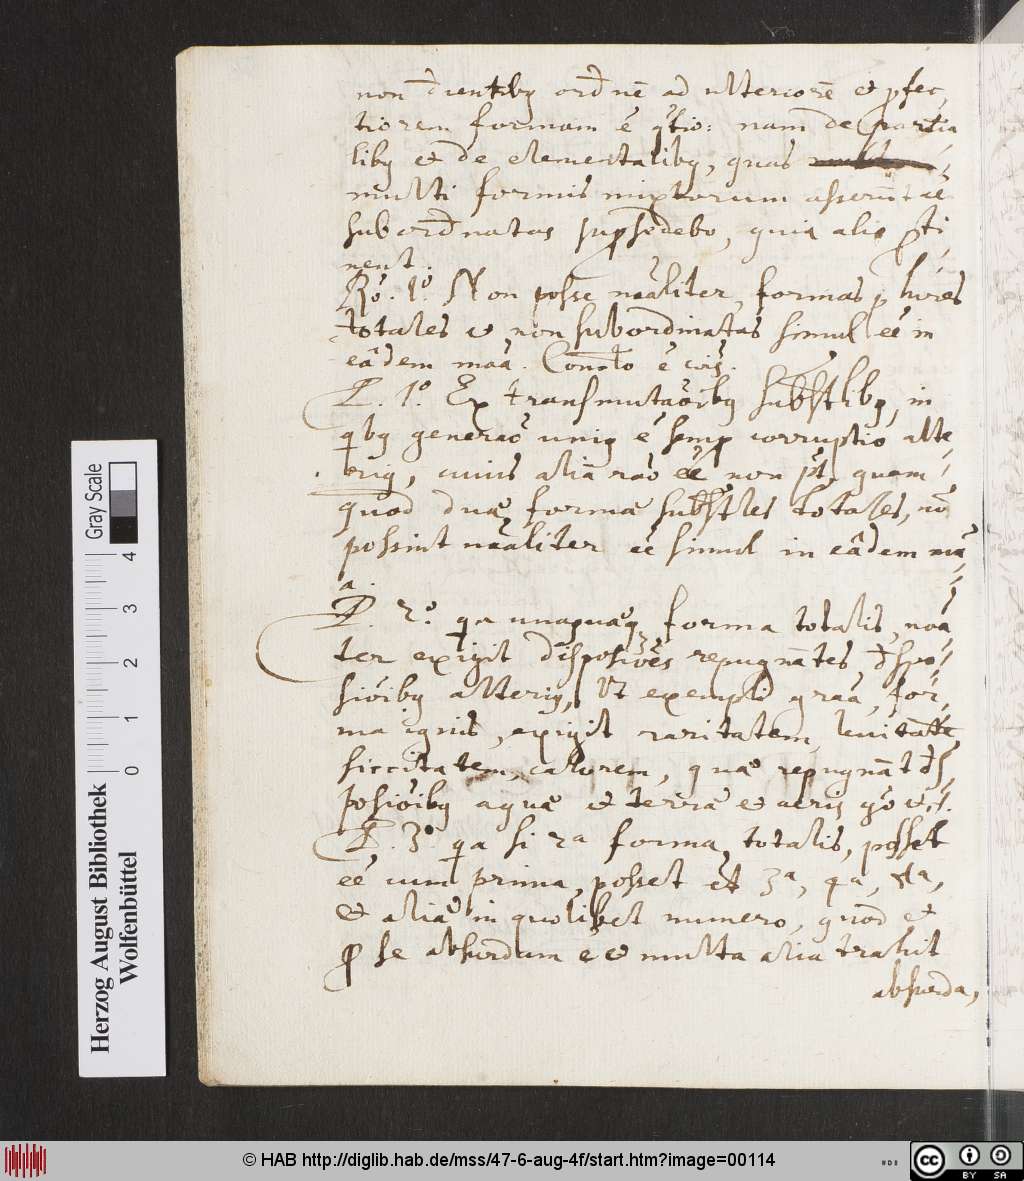 non dicentibꝫ ordinē ad ulteriorē et ꝑfec
tiorem formam ē q̄tio: nam de partia
libꝫ et de elementalibꝫ, quas
multi formis mixtorum asserūt eē
subordinatas suꝑsedebo, quia alio ꝑti
nent.
Rō. 1º. Non posse nāāliter, formas
totales et non subordinatas simul eē in
eādem māā. Conclō ē cōis.
P. 1º. Ex transmutaōibꝫ subst̄libꝫ, in
qibꝫ generaō uniꝫ ē semꝑ corruptio alte
riꝫ, cuius alia raō eē non pt̄, quam
quod duæ formæ subst̄les totales, nō
possint nāāliter eē simul in eādem mā
a.
P. 2º. qa unaquæqꝫ forma totalis, nāā
ter exigit dispoſiōēs repugnātes dispo
siōibꝫ alteriꝫ, Ut exempli graā, for
ma ignis, exigit raritatem, levitatē,
siccitatem, calorem, quæ repugnāt dis
posiōibꝫ aquæ et terræ et aeris gō etc.
P. 3º. qa si 2ª forma, totalis, posset
eē cum prima, posset et 3ª, 4ª, 5ª,
et aliæ in quolibet numero, quod et
ꝑ se absurdum ē et multa alia trahit
absurda,
Herzog August Bibliothek
Wolfenbüttel
Gray Scale
0 1 2 3 4
© HAB http://diglib.hab.de/mss/47-6-aug-4f/start.htm?image=00114
cc BY SA